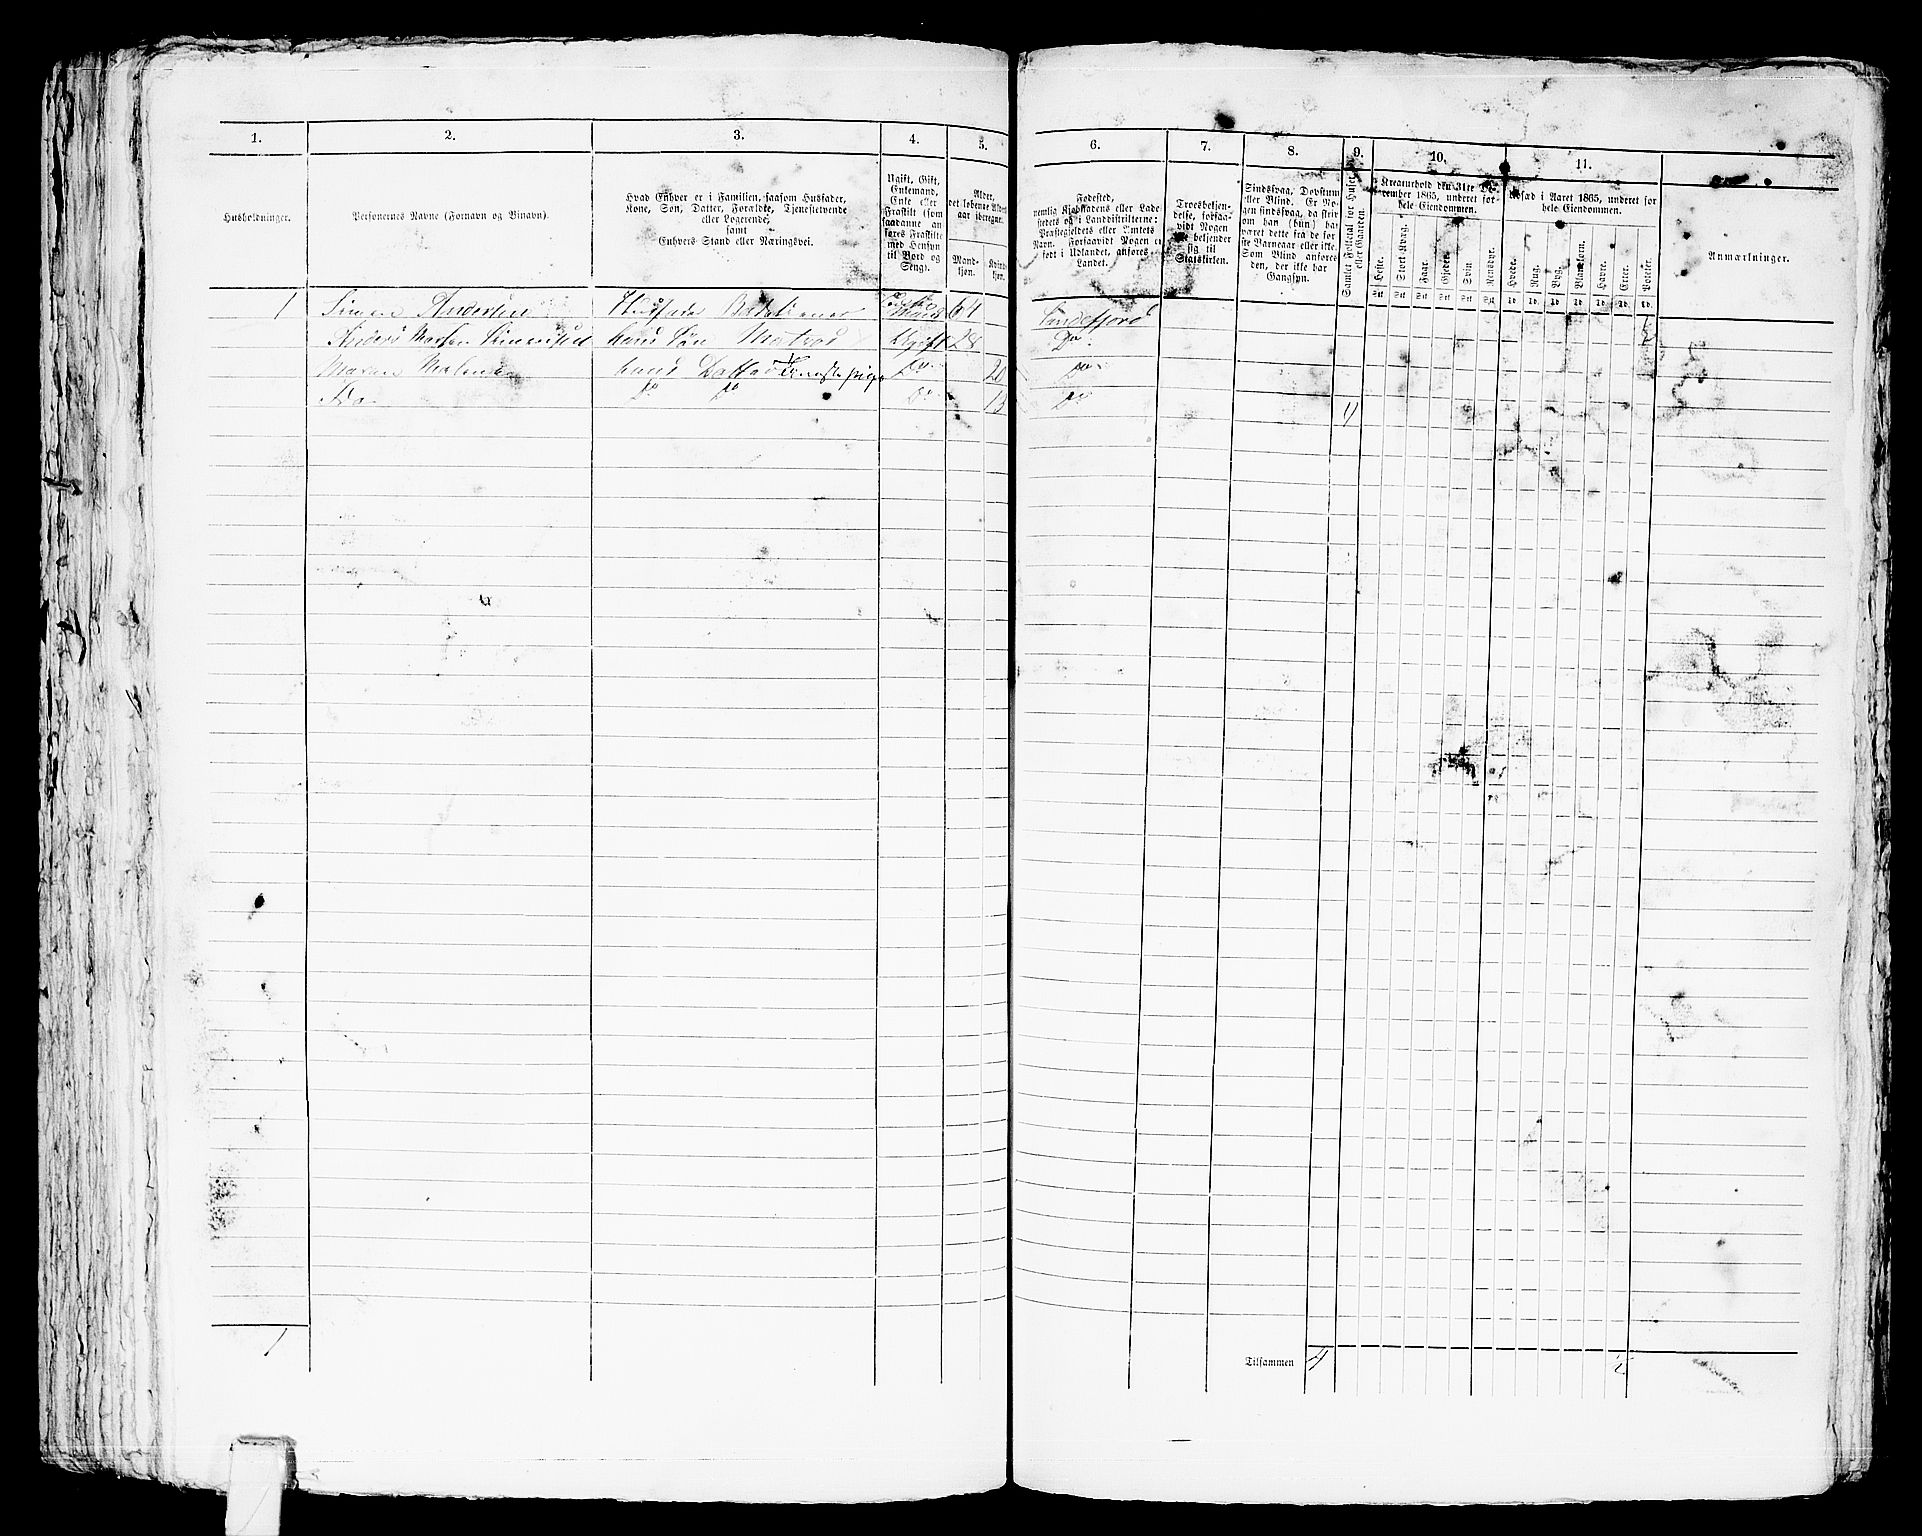 1.
2.
3.
4.
5.
6.
7.
8.
9.
10.
11.
Husholdninger.
Personernes Navne (Fornavn og Binavn).
Hvad Enhver er i Familien, saasom Husfader,
Kone, Søn, Datter, Forældre, Tjenestetyende
eller Logerende,
samt
Enhvers Stand eller Næringsvei.
Ugift, Gift,
Enkemand,
Enke eller
Fraskilt (som
saadanne an-
føres Fraskilte
med Hensyn
til Bord og
Seng).
Alder,
det løbende Alders-
aar iberegnet.
Mand-
kjøn.
Kvinde-
kjøn.
Fødested,
nemlig Kjøbstadens eller Lade-
stedets og i Landdistrikterne:
Præstegjeldets eller Amtets
Navn. Forsaavidt Nogen er
født i Udlandet, anføres
Landet.
Troesbekjen-
delse, forsaa-
vidt Nogen
ikke bekjender
sig til
Statskirken.
Sindssvag, Døvstum
eller Blind. Er No-
gen sindssvag, da skriv
om han (hun) har
været dette fra de før-
ste Barneaar eller ikke.
Som Blind anføres
den, der ikke har
Gangsyn.
Samlet Folketal for Huset
eller Gaarden.
Kreaturhold den 31te De-
cember 1865, underet for
hele Eiendommen.
Heste.
Stort Kvæg.
Faar.
Gjeder.
Svin.
Rensdyr.
Udsæd i Aaret 1865, underet for
hele Eiendommen.
Hvede.
Rug.
Byg.
Blandkorn.
Havre.
Erter.
Poteter.
Anmærkninger.
1 Simen Andersen Husfader 64 Sandefjord
Anders Simensen hans Søn Matros Ugift 28 Do
Maren hans Datter Tjenestepige Do 20 Do
Do Do Do Do
4
1
Tilsammen 4